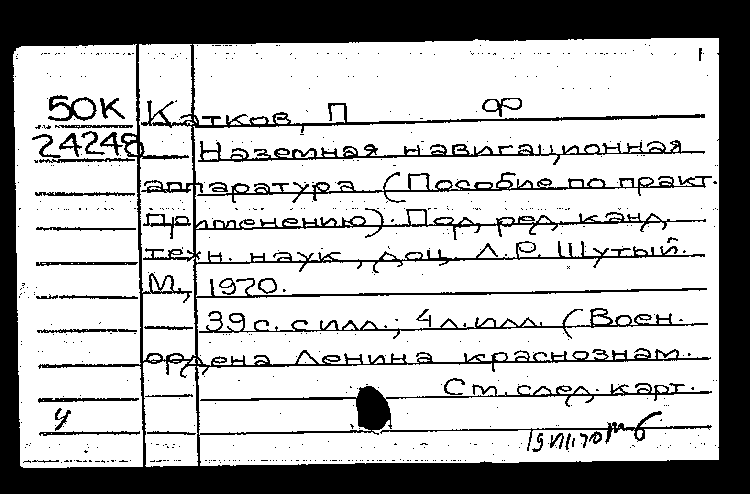 50К Катков, П ФР
24248 Наземная навигационная
аппаратура (Пособие по практ.
применению). Под ред. канд.
техн. наук, доц. Л.Р. Шутый.
М., 1970.
39 с. с илл.; 4 л. илл. (Воен.
ордена Ленина краснознам.
Ст. след. карт.